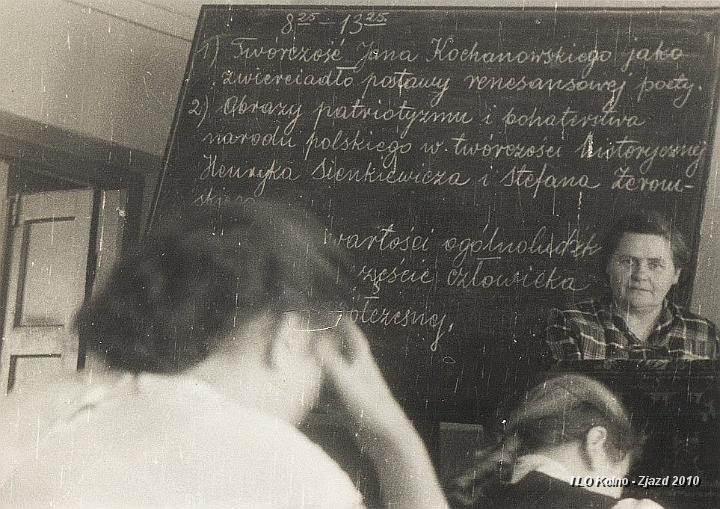 8²⁵ - 13²⁵
1) Twórczość Jana Kochanowskiego jako
zwierciadło postawy renesansowej poety.
2) Obrazy patriotyzmu i bohaterstwa
narodu polskiego w twórczości historycznej
Henryka Sienkiewicza i Stefana Żerom-
skiego
wartości ogólnoludzk
szczęście człowieka
ółczesnej.
I LO Kolno - Zjazd 2010